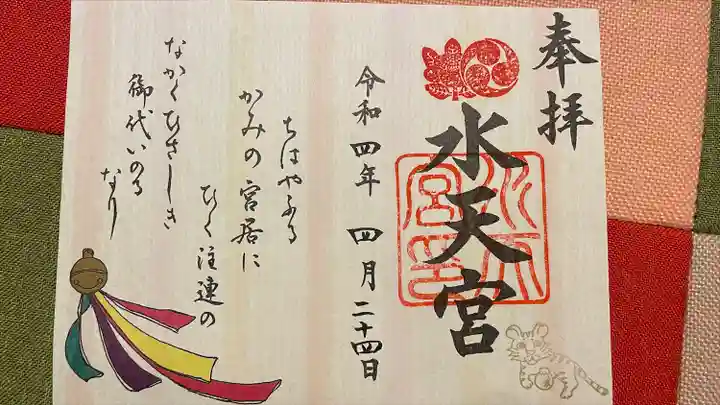 奉拝
水天宮
水天宮印
令和四年 四月二十四日
ちはやふる
かみの宮居に
ひく注連の
なかくひさしき
御代いのる
なり